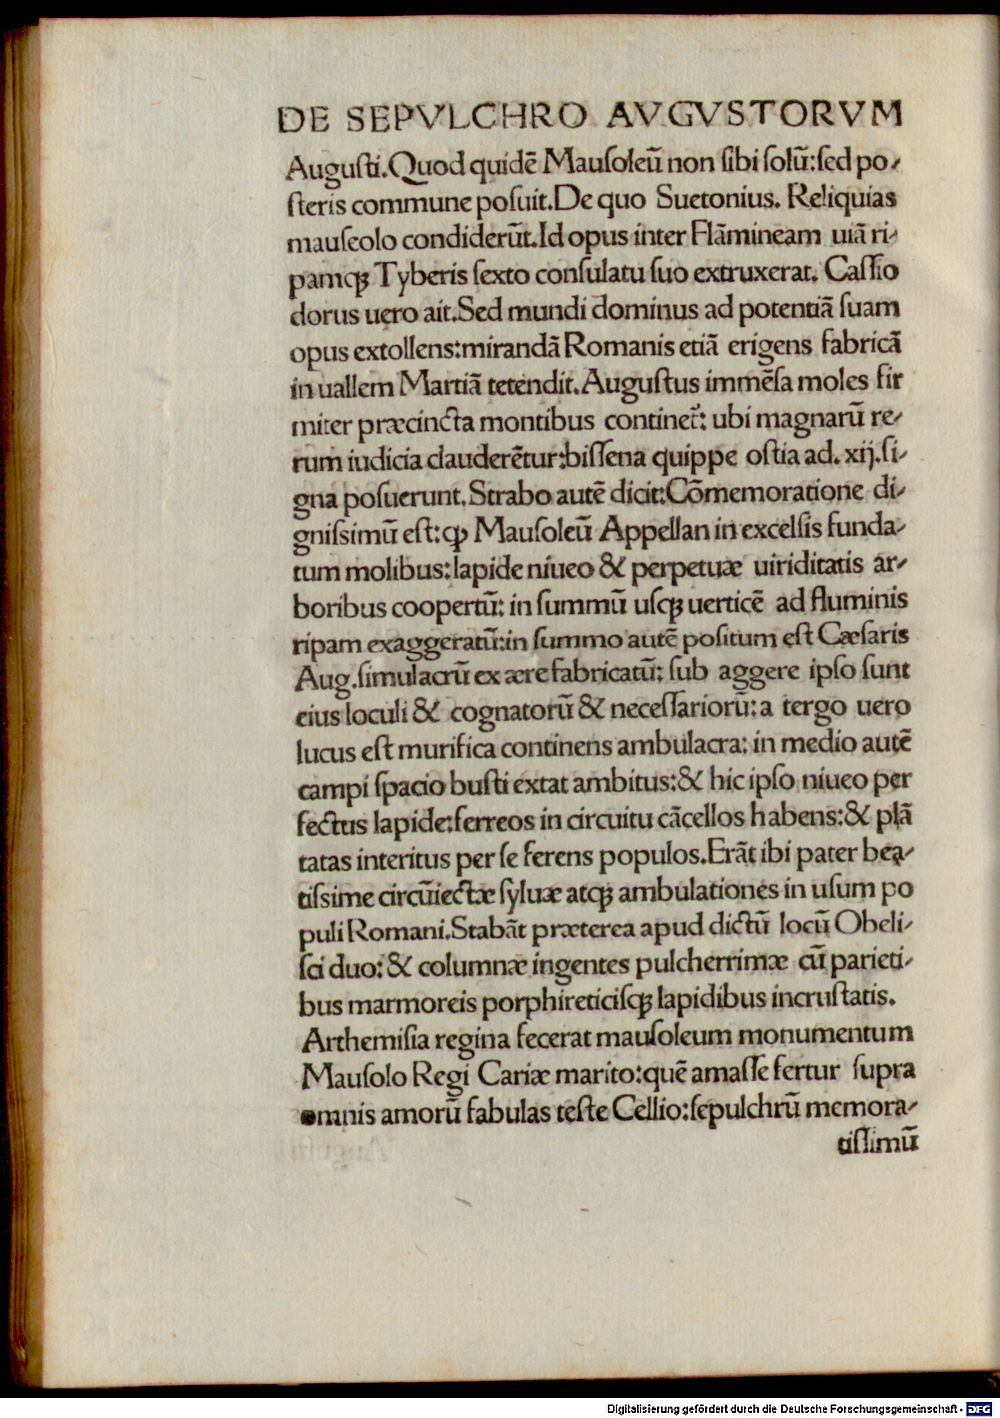 DE SEPVLCHRO AVGVSTORVM
Auguſti.Quod quidē Mauſoleū non ſibi ſolū:ſed po-
ſteris commune poſuit.De quo Suetonius. Reliquias
mauſeolo condiderūt.Id opus inter Flāmineam uiā ri-
pamqꝫ Tyberis ſexto conſulatu ſuo extruxerat. Caſſio
dorus uero ait.Sed mundi dominus ad potentiā ſuam
opus extollens:mirandā Romanis etiā erigens fabricā
in uallem Martiā tetendit.Auguſtus immēſa moles fir
miter præcincta montibus continet̄: ubi magnarū re-
rum iudicia clauderētur:biſſena quippe oſtia ad. xij.ſi-
gna poſuerunt.Strabo autē dicit:Cōmemoratione di-
gniſsimū eſt:ꝙ Mauſoleū Appellan in excelſis funda-
tum molibus:lapide niueo & perpetuæ uiriditatis ar-
boribus coopertū: in ſummū uſqꝫ uerticē ad fluminis
ripam exaggeratū:in ſummo autē poſitum eſt Cæſaris
Aug.ſimulacrū ex ære fabricatū: ſub aggere ipſo ſunt
eius loculi & cognatorū & neceſſariorū: a tergo uero
lucus eſt murifica continens ambulacra: in medio autē
campi ſpacio buſti extat ambitus:& hic ipſo niueo per
fectus lapide:ferreos in circuitu cācellos habens:& plā
tatas interitus per ſe ferens populos.Erāt ibi pater bea-
tiſsime circūiectæ ſyluæ atqꝫ ambulationes in uſum po
puli Romani.Stabāt præterea apud dictū locū Obeli-
ſci duo: & columnæ ingentes pulcherrimæ cū parieti-
bus marmoreis porphireticiſqꝫ lapidibus incruſtatis.
Arthemiſia regina fecerat mauſoleum monumentum
Mauſolo Regi Cariæ marito:quē amaſſe fertur ſupra
omnis amorū fabulas teſte Cellio:ſepulchrū memora-
tiſſimū
Digitalisierung gefördert durch die Deutsche Forschungsgemeinschaft - DFG